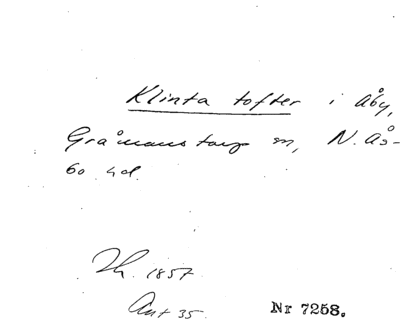 Klinta tofter i Åby,
Gråmanstorp sn, N. Ås-
bo hd.
Th. 1857
Ant 35. Nr 7258.